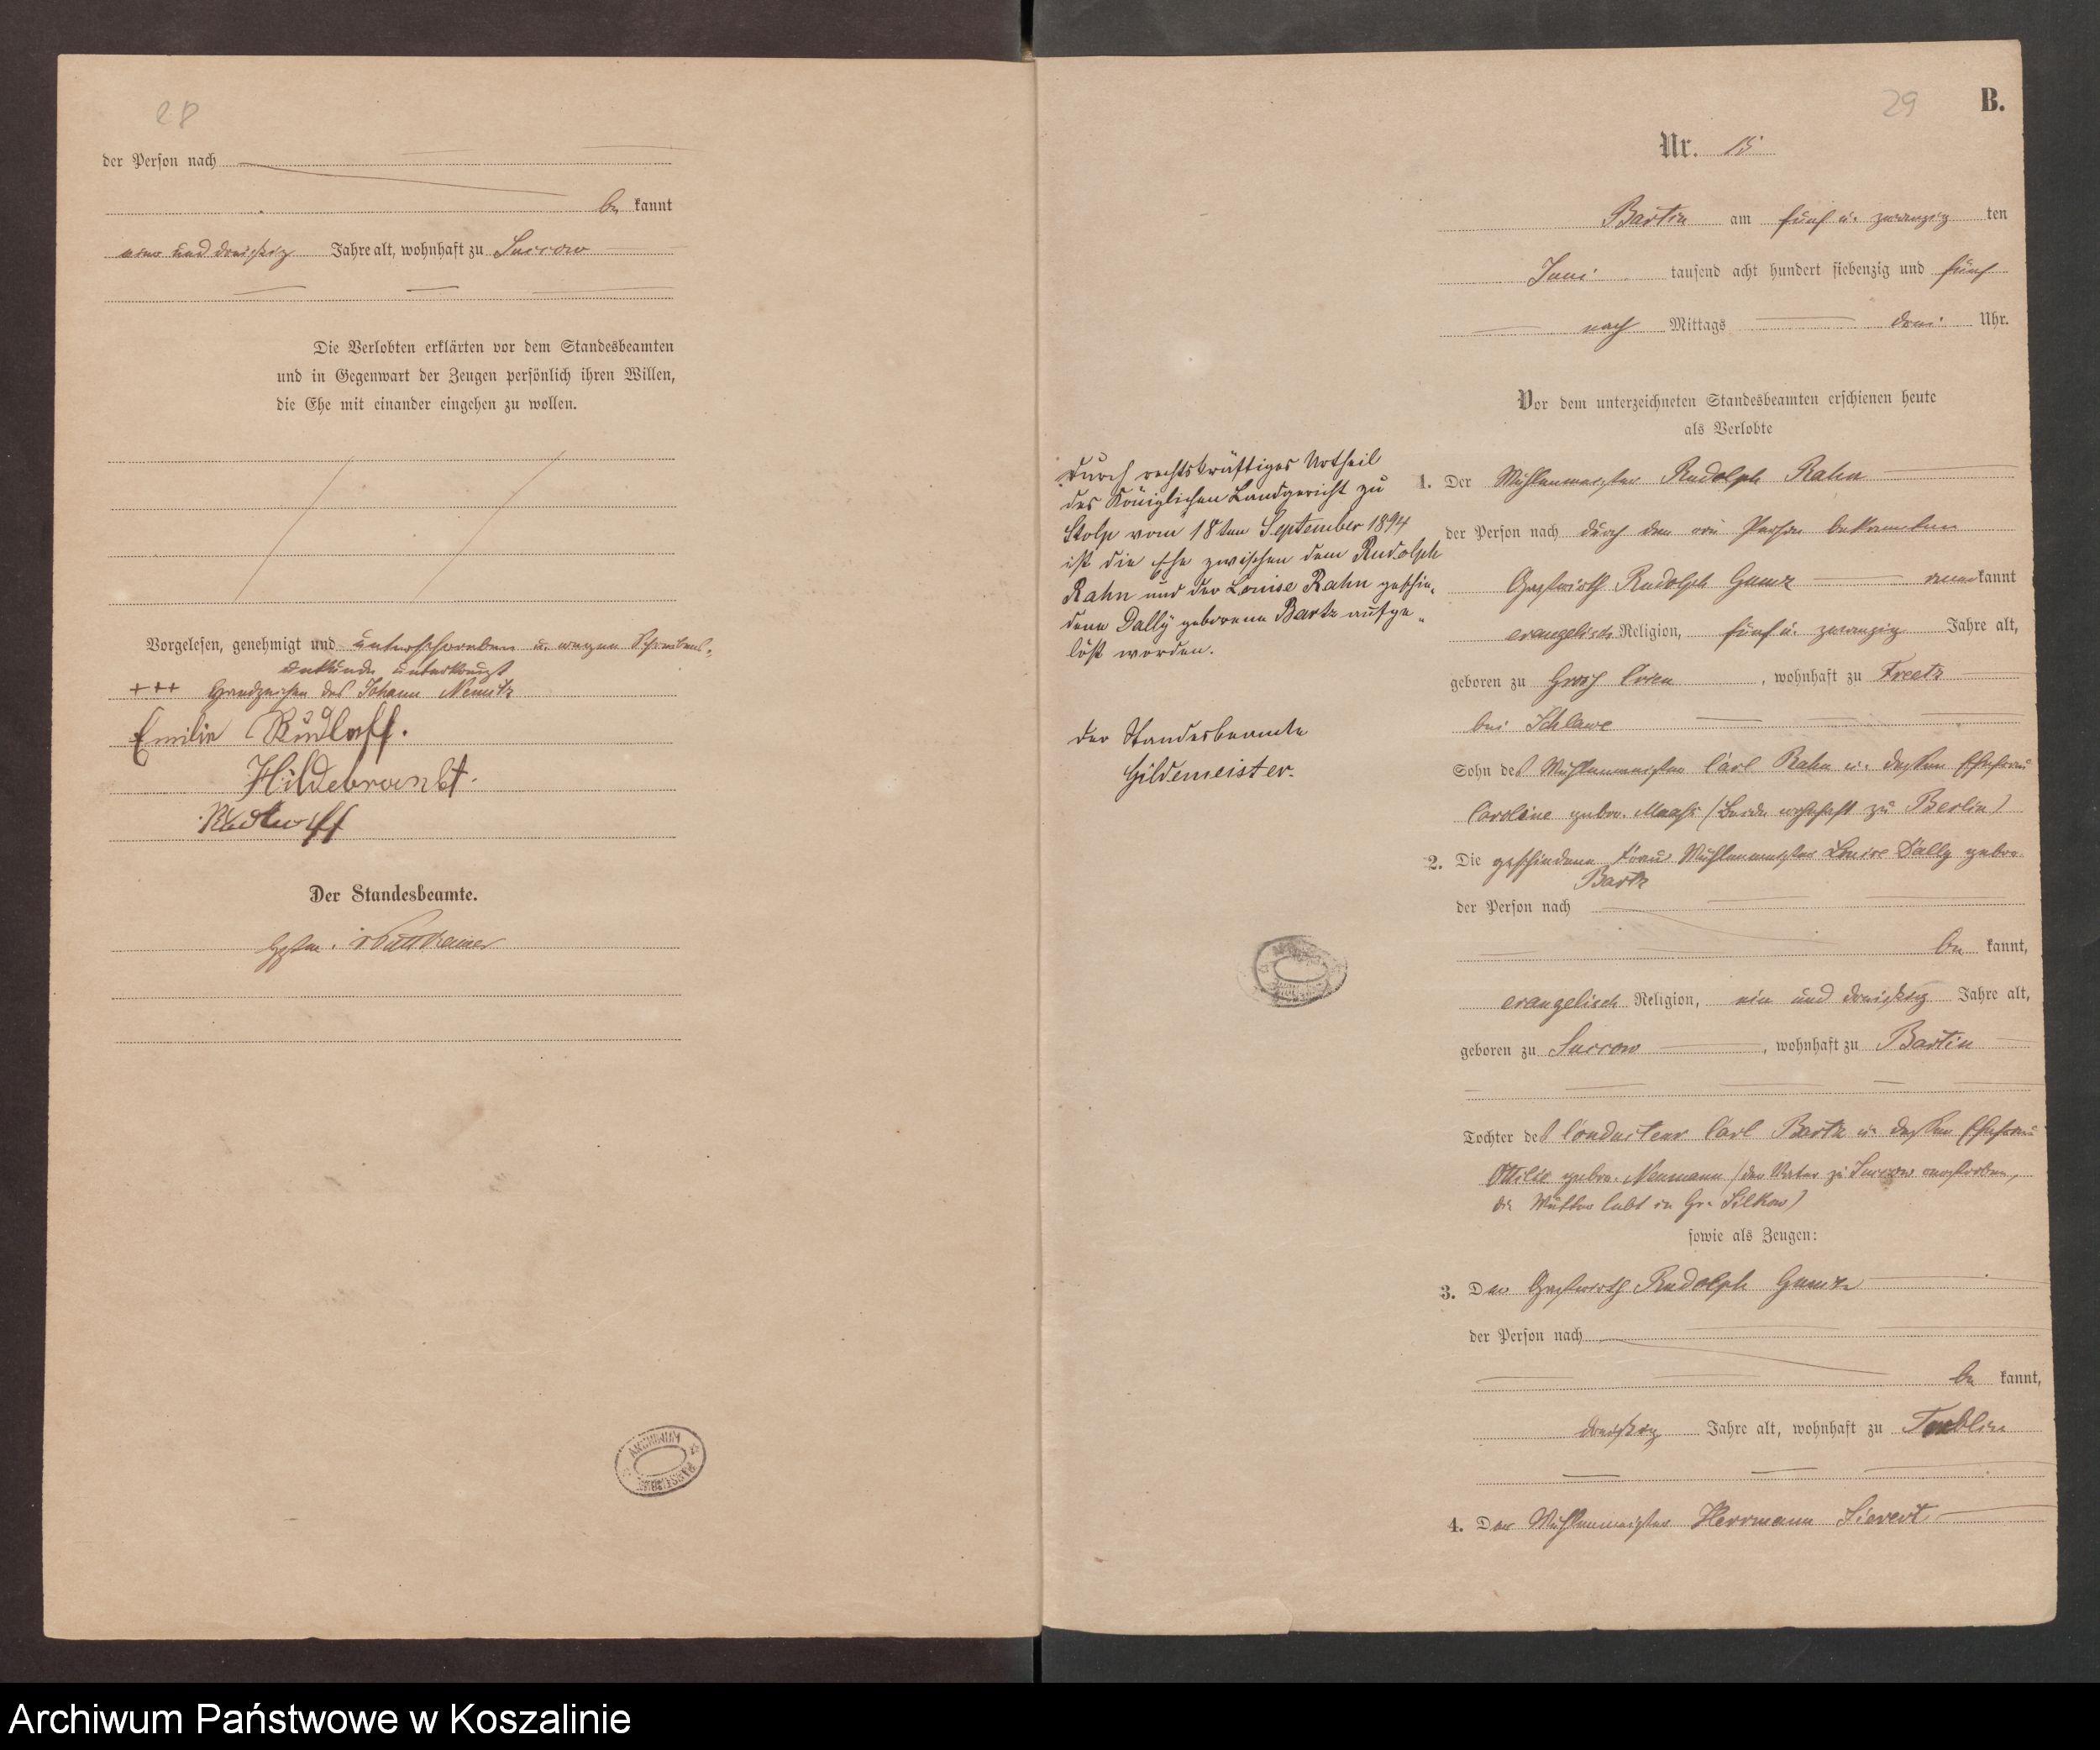 28
der Person nach
be kannt
ein und dreißig Jahre alt, wohnhaft zu Surrow
Die Verlobten erklärten vor dem Standesbeamten
und in Gegenwart der Zeugen persönlich ihren Willen,
die Ehe mit einander eingehen zu wollen.
Vorgelesen, genehmigt und unterschrieben u. wegen Schreibens-
unkunde unterkreuzt
+++ Handzeichen des Johann Nemitz
Emilie Rudlaff.
Hildebrandt.
Rudlaff
Der Standesbeamte.
29
B.
Nr. 15
Bartin am fünf u. zwanzig ten
Juni tausend acht hundert siebenzig und fünf
nach Mittags drei Uhr.
Vor dem unterzeichneten Standesbeamten erschienen heute
als Verlobte
1. Der Mühlenmeister Rudolph Rahn
der Person nach durch den von Person bekannten
Gastwirth Rudolph Gumz anerkannt
evangelisch Religion, fünf u. zwanzig Jahre alt,
geboren zu Groß , wohnhaft zu Freetz
bei Schlawe
Sohn des Mühlenmeister Carl Rahn u. dessen Ehefrau
Caroline gebor. Maaß (beide wohnhaft zu Berlin)
2. Die geschiedene Frau Mühlenmeister Louise Dally gebor.
Bartz
der Person nach
be kannt,
evangelisch Religion, ein und dreißig Jahre alt,
geboren zu Surrow , wohnhaft zu Bartin
Tochter des Conducteur Carl Bartz u. dessen Ehefrau
Ottilie gebor. Neumann (der Vater zu Surrow verstorben,
die Mutter lebt in Gr. Silkow)
sowie als Zeugen:
3. Der Gastwirth Rudolph Gumz
der Person nach
be kannt,
dreißig Jahre alt, wohnhaft zu Treblin
4. Der Mühlenmeister Herrmann Sievert
Durch rechtskräftiges Urtheil
des Königlichen Landgericht zu
Stolp vom 18ten September 1894
ist die Ehe zwischen dem Rudolph
Rahn und der Louise Rahn geschie-
dene Dally geborene Bartz aufge-
löst worden.
Der Standesbeamte
Gildemeister.
ARCHIWUM
Archiwum Państwowe w Koszalinie